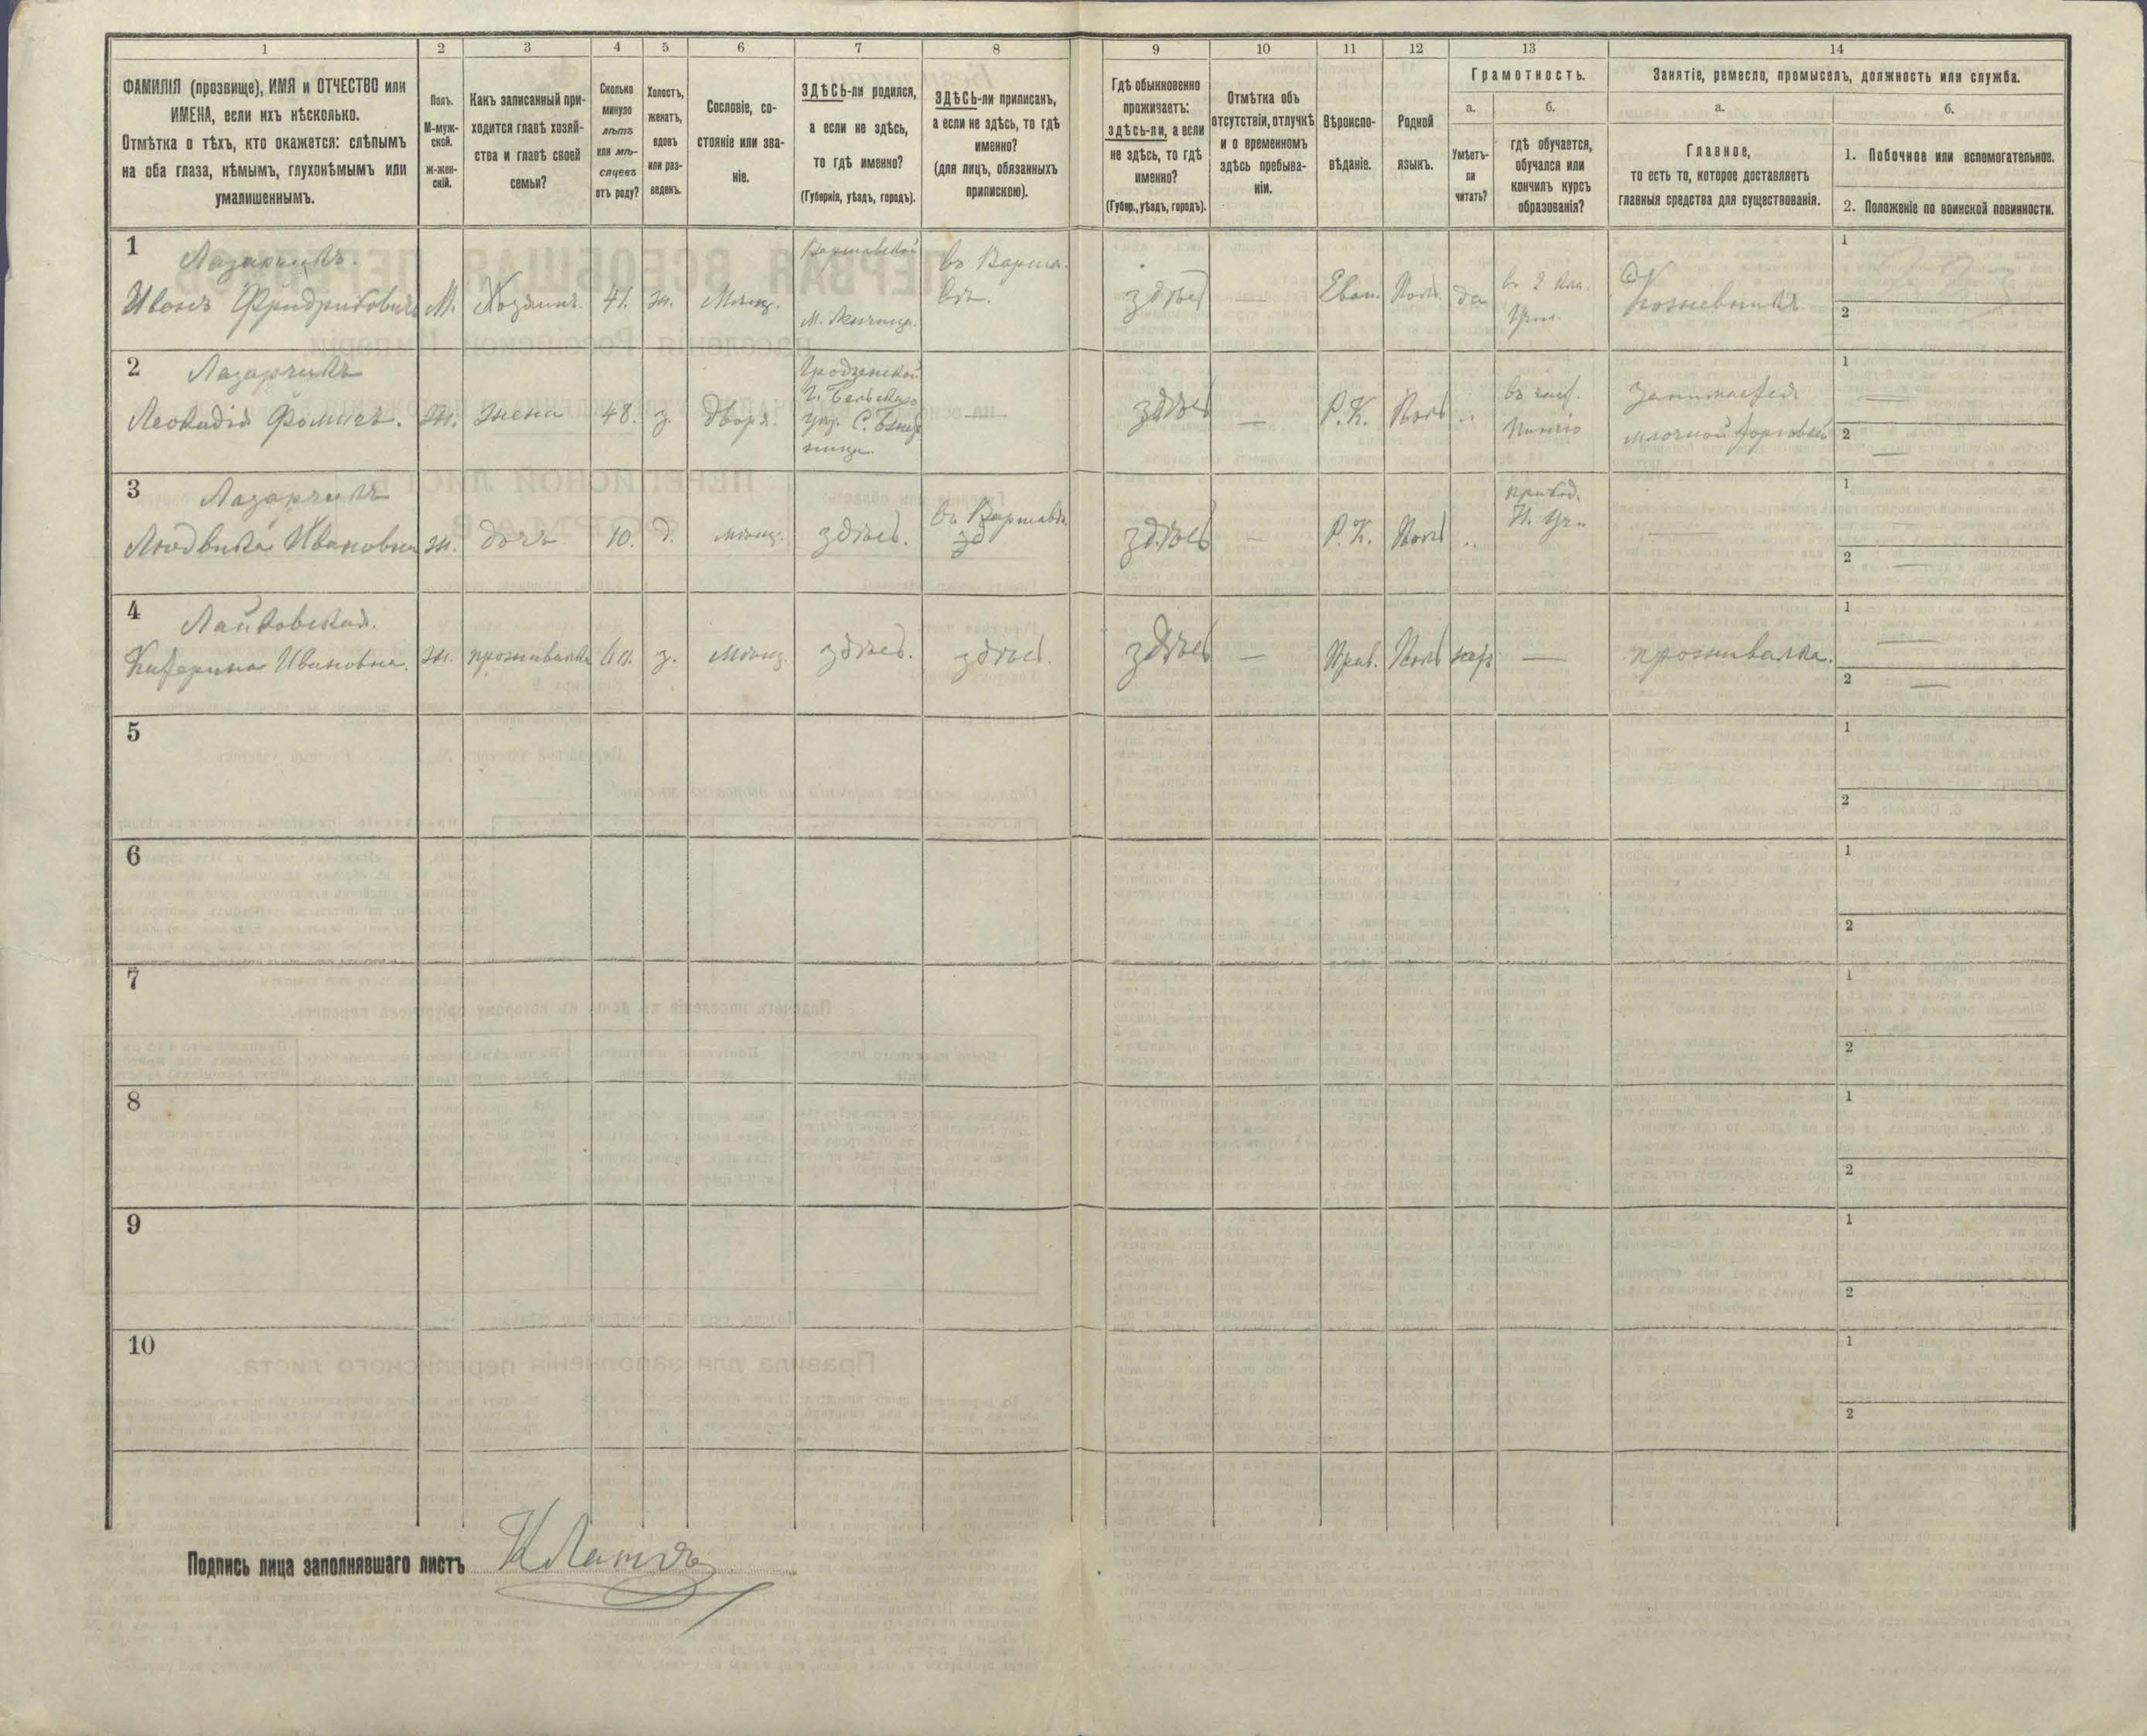 1 2 3 4 5 6 7 8 9 10 11 12 13 14
ФАМИЛІЯ (прозвище), ИМЯ и ОТЧЕСТВО или
ИМЕНА, если ихъ нѣсколько.
Отмѣтка о тѣхъ, кто окажется: слѣпымъ
на оба глаза, нѣмымъ, глухонѣмымъ или
умалишеннымъ.
Полъ.
М-муж-
ской.
ж-жен-
скій.
Какъ записанный при-
ходится главѣ хозяй-
ства и главѣ своей
семьи?
Сколько
минуло
лѣтъ
или мѣ-
сяцевъ
отъ роду?
Холостъ,
женатъ,
вдовъ
или раз-
веденъ.
Сословіе, со-
стояніе или зва-
ніе.
ЗДѢСЬ-ли родился,
а если не здѣсь,
то гдѣ именно?
(Губернія, уѣздъ, городъ).
ЗДѢСЬ-ли приписанъ,
а если не здѣсь, то гдѣ
именно?
(для лицъ, обязанныхъ
припискою).
Гдѣ обыкновенно
проживаетъ:
здѣсь-ли, а если
не здѣсь, то гдѣ
именно?
(Губер., уѣздъ, городъ).
Отмѣтка объ
отсутствіи, отлучкѣ
и о временномъ
здѣсь пребыва-
ніи.
Вѣроиспо-
вѣданіе.
Родной
языкъ.
Грамотность.
а.
Умѣетъ-
ли
читать?
б.
гдѣ обучается,
обучался или
кончилъ курсъ
образованія?
Занятіе, ремесло, промыселъ, должность или служба.
а.
Главное,
то есть то, которое доставляетъ
главныя средства для существованія.
б.
1. Побочное или вспомогательное.
2. Положеніе по воинской повинности.
1
Лазарчикъ.
Иванъ Фридриховичъ
М.
Хозяинъ.
41.
ж.
Мѣщ.
Варшавской
въ Варша-
вѣ.
здѣсь
—
Еван.
Поль.
да
въ 2 кла.
Кожевникъ
1
2
2
Лазарчикъ
Леокадія
ж.
жена
48.
з.
дворя.
Гродзенской
г. Бельскаго
—
здѣсь
—
Р.К.
Поль
"
въ час.
занимается
молочной торговлей
1
—
2
—
3
Лазарчикъ
Людвика Ивановна
ж.
дочь
10.
д.
мѣщ.
здѣсь.
въ Варшавѣ.
здѣсь
—
Р.К.
Поль
"
приход.
—
1
2
—
4
Лайковская.
Катерина Ивановна.
ж.
проживалка
з.
Мѣщ.
здѣсь.
здѣсь.
здѣсь
—
Прав.
Поль
—
проживалка.
1
—
2
—
5
1
2
6
1
2
7
1
2
8
1
2
9
1
2
10
1
2
Подпись лица заполнявшаго листъ